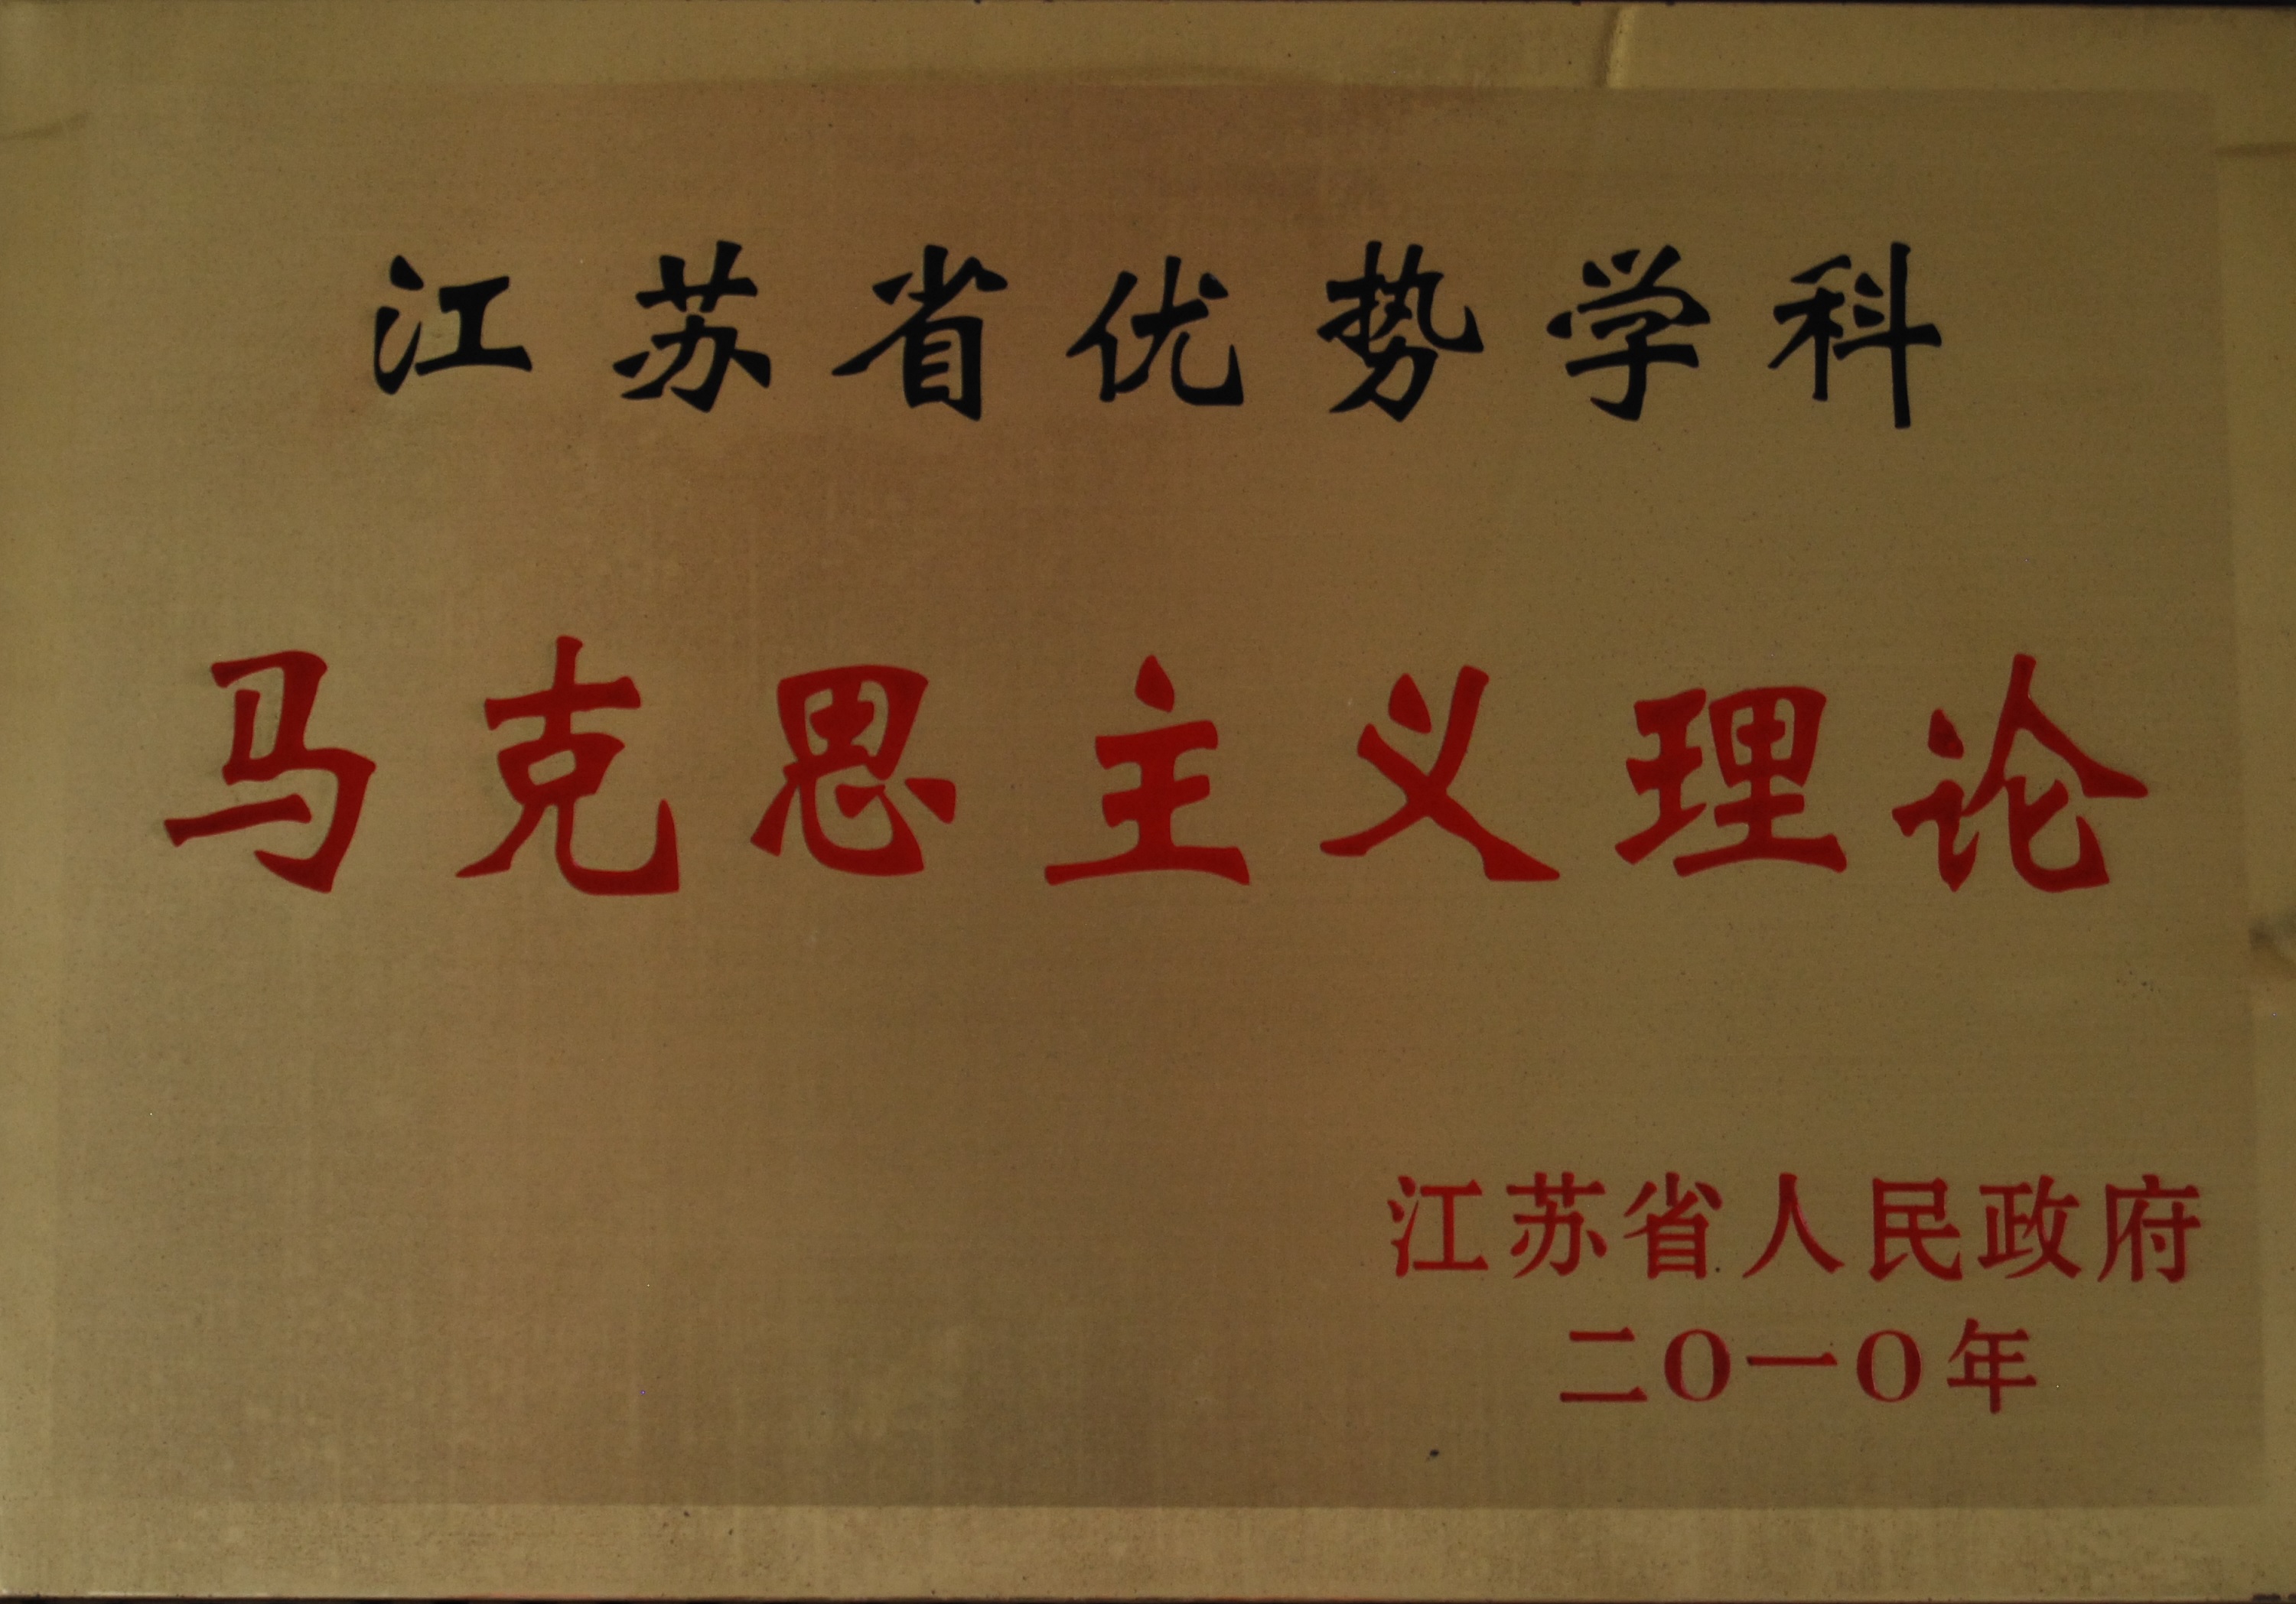 江苏省优势学科
马克思主义理论
江苏省人民政府
二〇一〇年